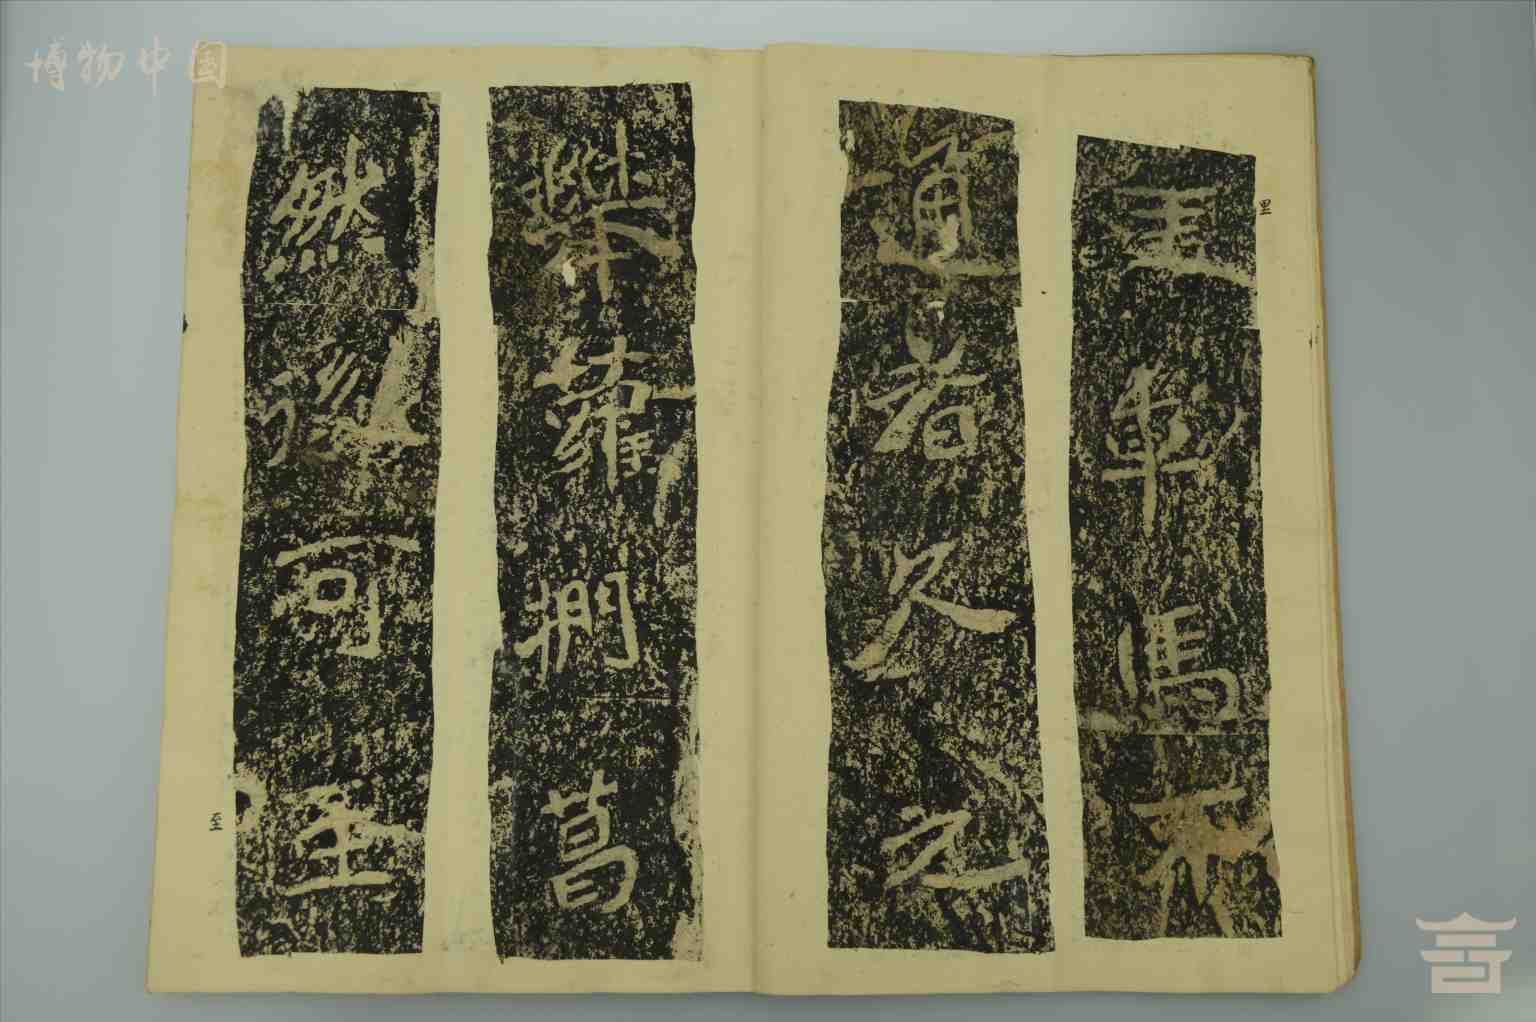 博物中国
里
里車馬不
通者久之
攀蘿捫葛
然後可至
至